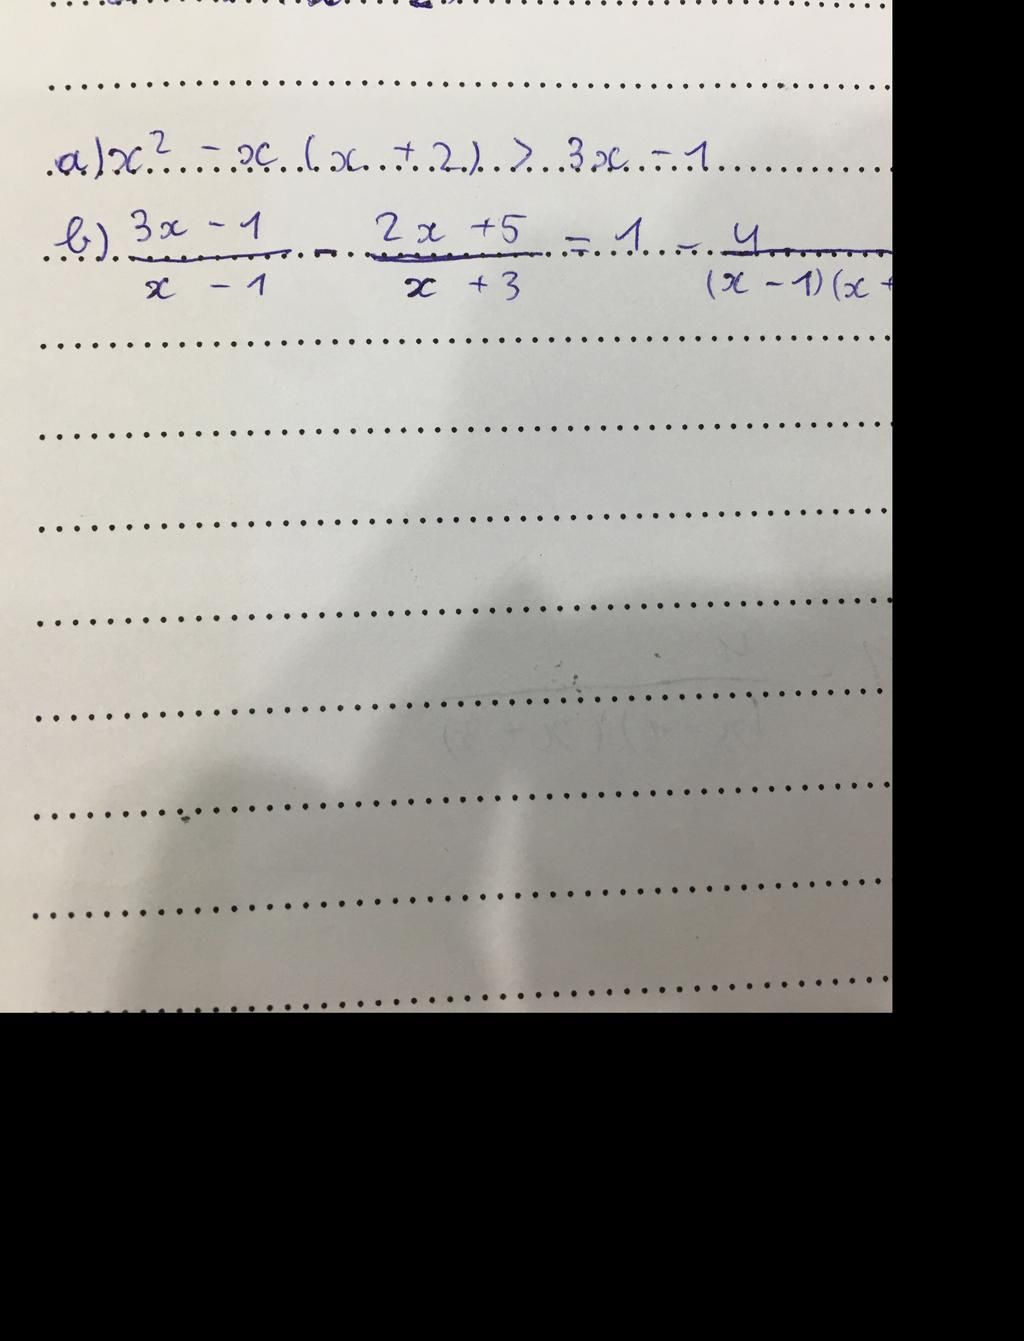 a) x² - x (x + 2) > 3x - 1
b) 3x - 1 / x - 1 - 2x + 5 / x + 3 = 1 - 4 / (x - 1)(x +